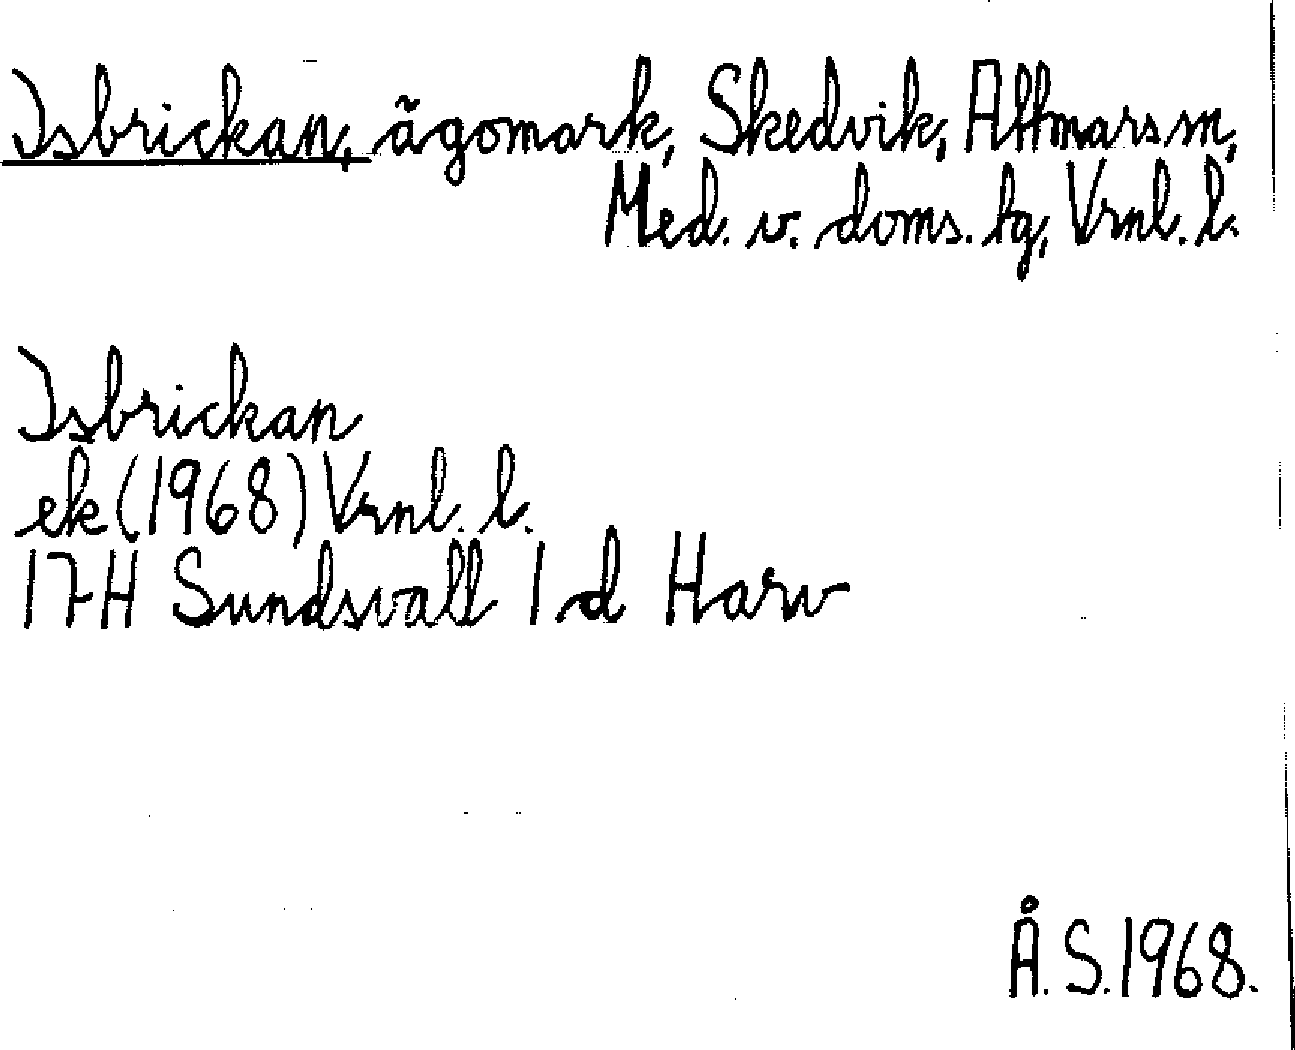 Isbrickan, ägomark, Skedvik, Attmars sn,
Med. v. doms. lg, Vrnl. l.
Isbrickan
ek (1968) Vrnl. l.
17H Sundsvall 1 d Harv
Å. S. 1968.